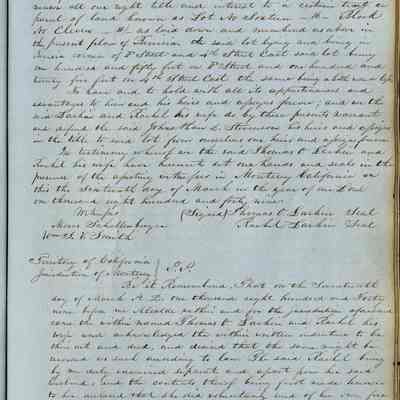 all our right title and interest to a certain
of land known as Lot No sixteen — 16 — Block
No Eleven — 11 as laid down and numbered as above in
the present plan of said lot lying and being
corner of Street and 4th Street East said lot being
one hundred and fifty feet on Street and one hundred and
twenty five feet on 4th Street East the same being
To have and to hold with all its appurtenances and
advantages to him and his heirs and assigns forever; and we the
said Larkin and Rachel his wife do by these presents warrant
and defend the said Johnathan D. Stevenson his heirs and assigns
in the title to said lot from ourselves our heirs and assigns forever
In testimony whereof we the said Thomas O. Larkin and
Rachel his wife have hereunto set our hands and seals in the
presence of the in Monterey California on
this the day of March in the year of our Lord
one thousand eight hundred and forty nine
Witness (Signed) Thomas O Larkin Seal
Moses Schallenberger Rachel Larkin Seal
Wm Smith
Territory of California
Jurisdiction of Monterey
Be it Remembered, That on the
day of March A. D. one thousand eight hundred and forty
nine before me Alcalde within and for the jurisdiction aforesaid
came the within named Thomas O Larkin and Rachel his
wife and acknowledged the within written indenture to be
their act and deed, and desired that the same might be
recorded as such according to law. The said Rachel being
by me duly examined separate and apart from her said
husband, and the contents thereof being first made known
to her declared that she did voluntarily and of her own free